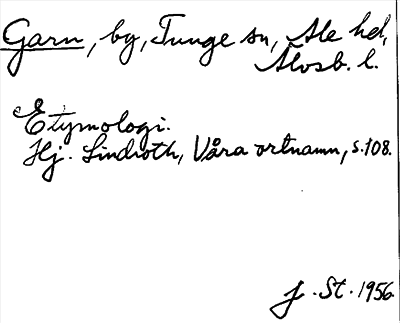 Garn, by, Tunge sn, Ale hd,
Älvsb. l.
Etymologi.
Hj. Lindroth, Våra ortnamn, s. 108.
J. St. 1956.